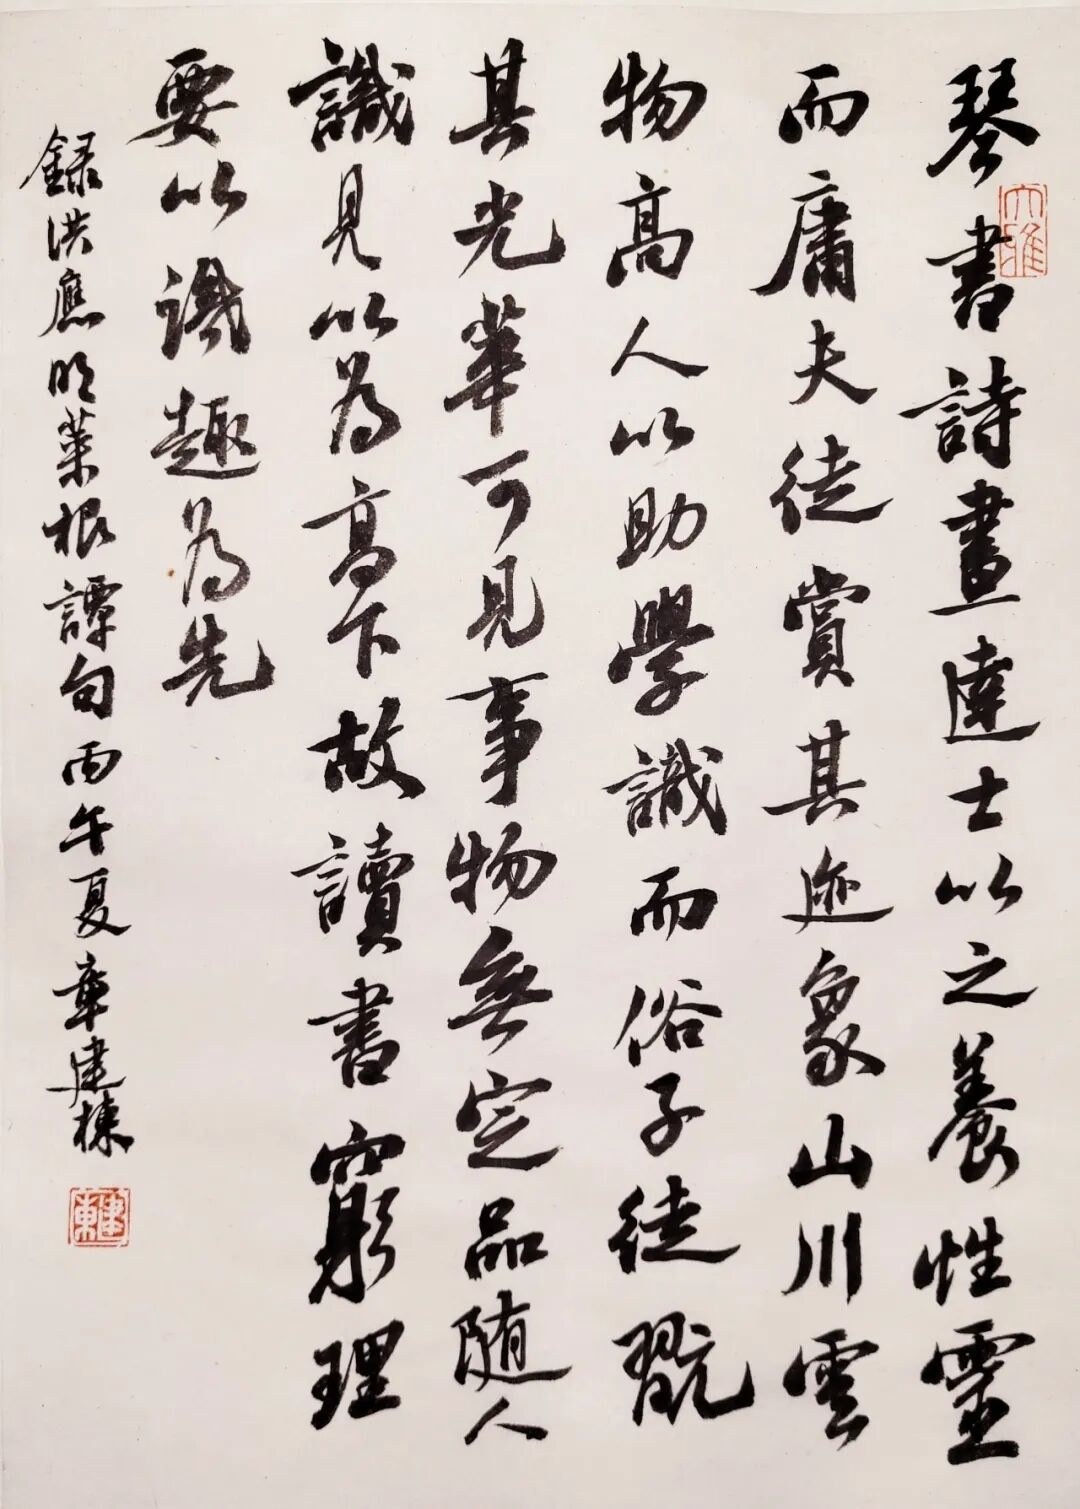 琴書詩畫達士以之養性靈
而庸夫徒賞其迹象山川雲
物高人以助學識而俗子徒翫
其光華可見事物無定品隨人
識見以為高下故讀書窮理
要以識趣為先
録洪應明菜根譚句丙午夏章建棟
大雅
建東